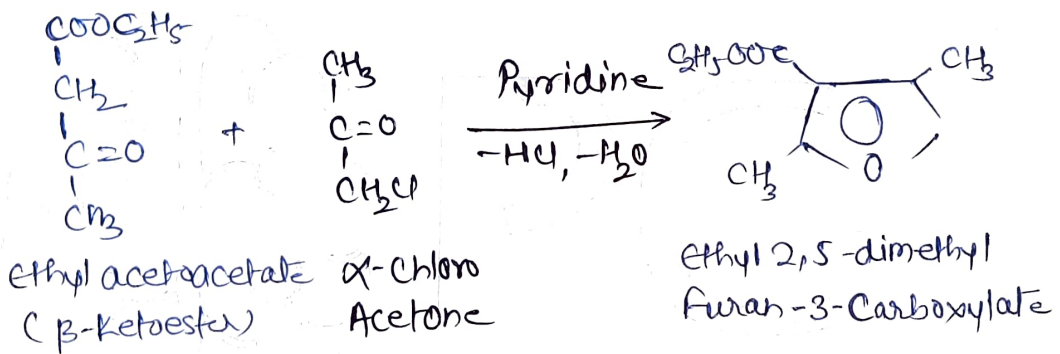 COOC2H5
CH2
C=O
CH3
+
CH3
C=O
CH2Cl
Pyridine
-HCl, -H2O
C2H5OOC
CH3
CH3
O
Ethyl acetoacetate
(β-Ketoester)
α-Chloro
Acetone
Ethyl 2,5-dimethyl
Furan-3-Carboxylate